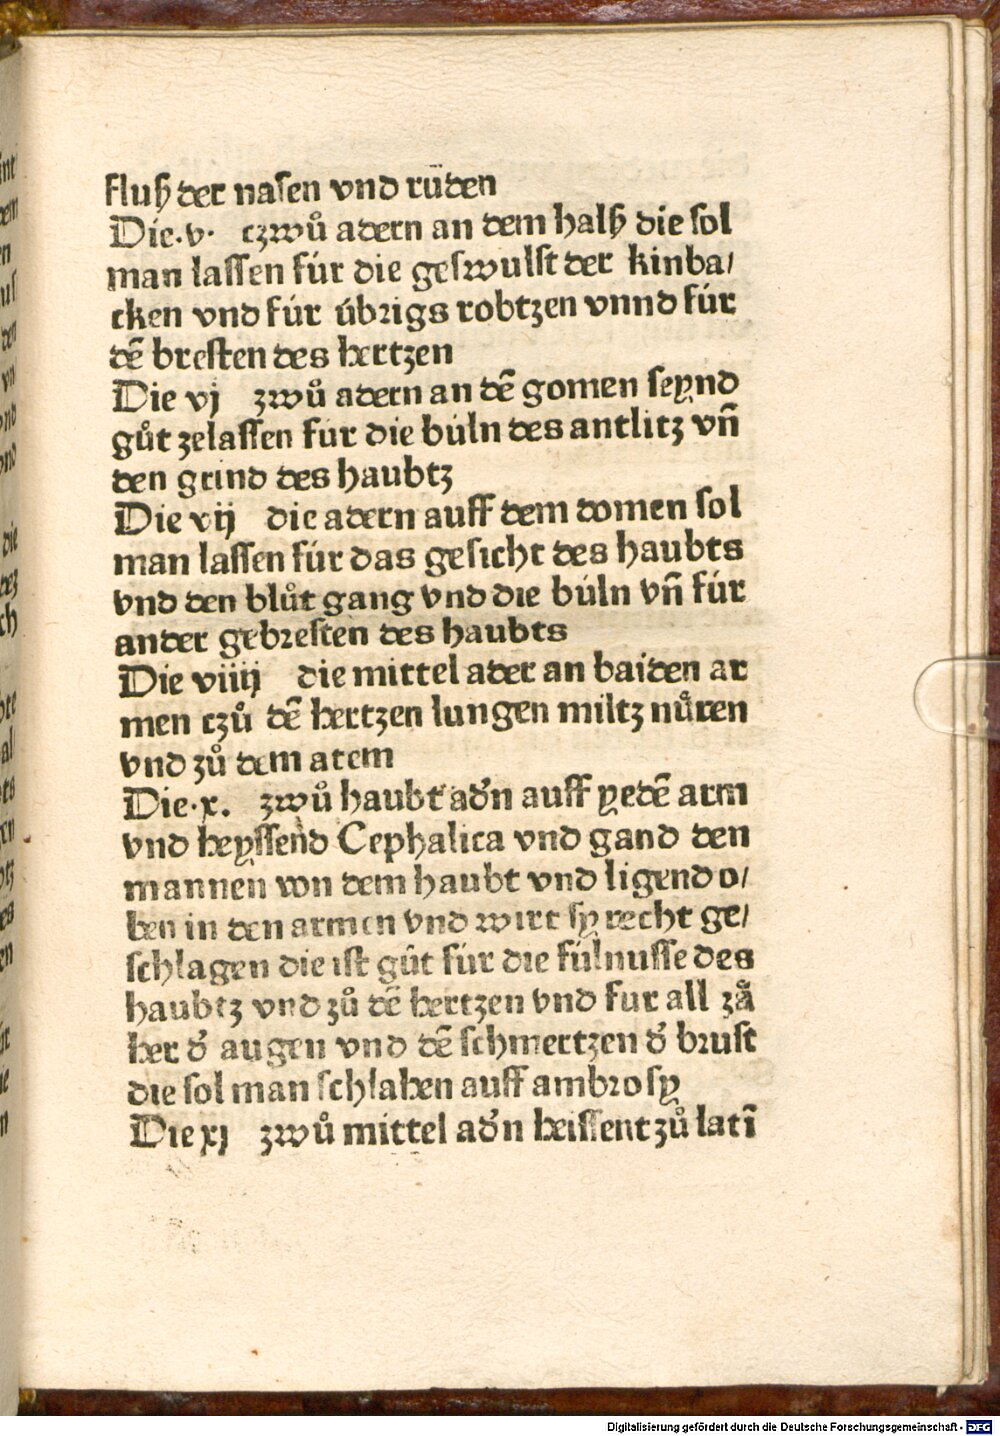 fluß der nasen vnd rüden
Die·v· czwů adern an dem halß die sol
man lassen fúr die geswulst der kinba/
cken vnd fúr úbrigs robtzen vnnd fúr
dē bresten des hertzen
Die vj zwů adern an dē gomen seynd
gůt zelassen fúr die búln des antlitz vn̄
den grind des haubtz
Die vij die adern auff dem domen sol
man lassen fúr das gesicht des haubts
vnd den blůt gang vnd die búln vn̄ fúr
ander gebresten des haubts
Die viiij die mittel ader an baiden ar
men czů dē hertzen lungen miltz nůren
vnd zů dem atem
Die·x. zwů haubt adn̄ auff yedē arm
vnd heyssend Cephalica vnd gand den
mannen von dem haubt vnd ligend o/
ben in den armen vnd wirt sy recht ge/
schlagen die ist gůt fúr die fúlnusse des
haubtz vnd zů dē hertzen vnd fur all zå
her d̕ augen vnd dē schmertzen d̕ brust
die sol man schlahen auff ambrosy
Die xj zwů mittel ad̕n heissent zů latī
Digitalisierung gefördert durch die Deutsche Forschungsgemeinschaft - DFG